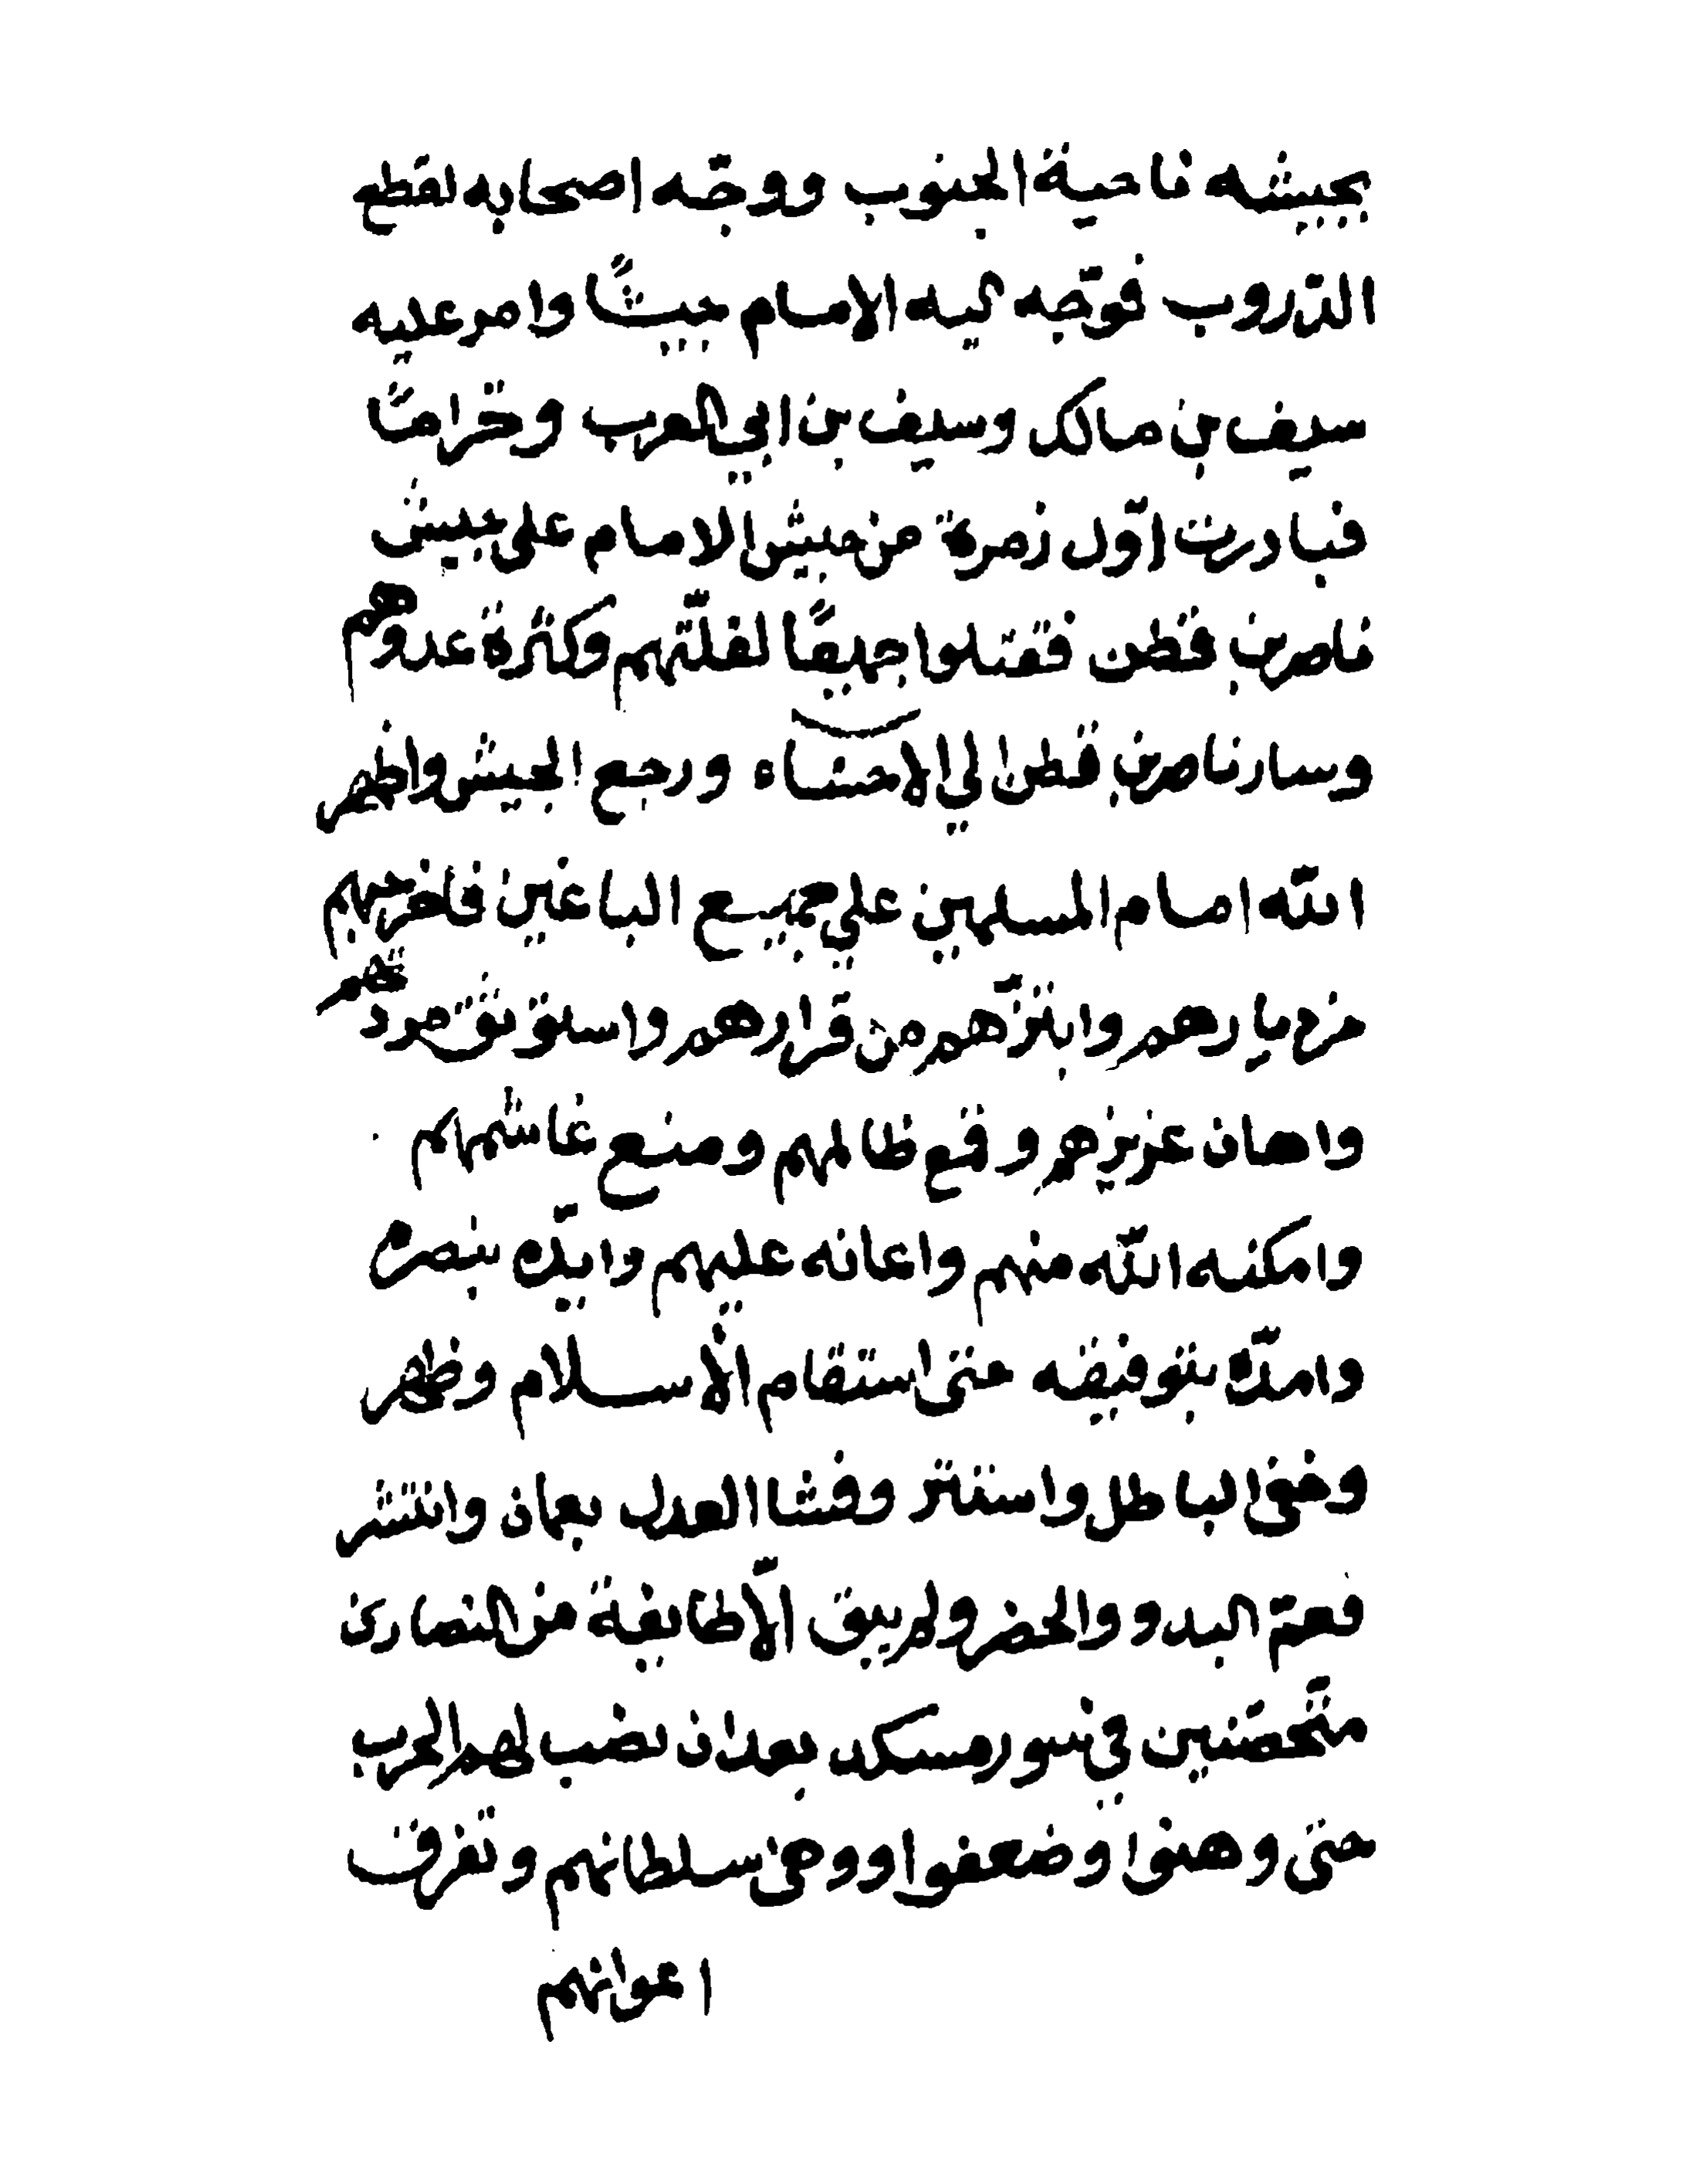 بجيشه ناحية الجنوب ووجّه اصحابه لقطع
الدّروب فوجّه اليه الامام جيشًا وامر عليه
سيف بن مالك وسيف بن ابي العرب وحزامًا
فبادرت اوّل زمرة من جيش الامام على جيش
ناصر بن قطن فقتلوا جميعًا لقلّتهم وكثرة عدوهم
وسار ناصر بن قطن الي الاحساء ورجع الجيش واظهر
الله امام المسلمين علي جميع الباغين فاخرجهم
من ديارهم وابتزّهم من قرارهم واستوثق مردتهم
واهان عزيزهم وقمع ظالمهم ومنع غاشمهم
وامكنه الله منهم واعانه عليهم وايّده بنصره
وامدّه بتوفيقه حتى استقام الأسلام وظهر
وخفى الباطل واستتر وفشا العدل بعمان وانتشر
فعمّ البدو والحضر ولم يبق الّا طايفة من النصارى
متّحصّنين في سور مسكد بعد ان نصب لهم الحرب
حتى وهنوا وضعفوا ووهى سلطانهم وتفرق
اعوانهم